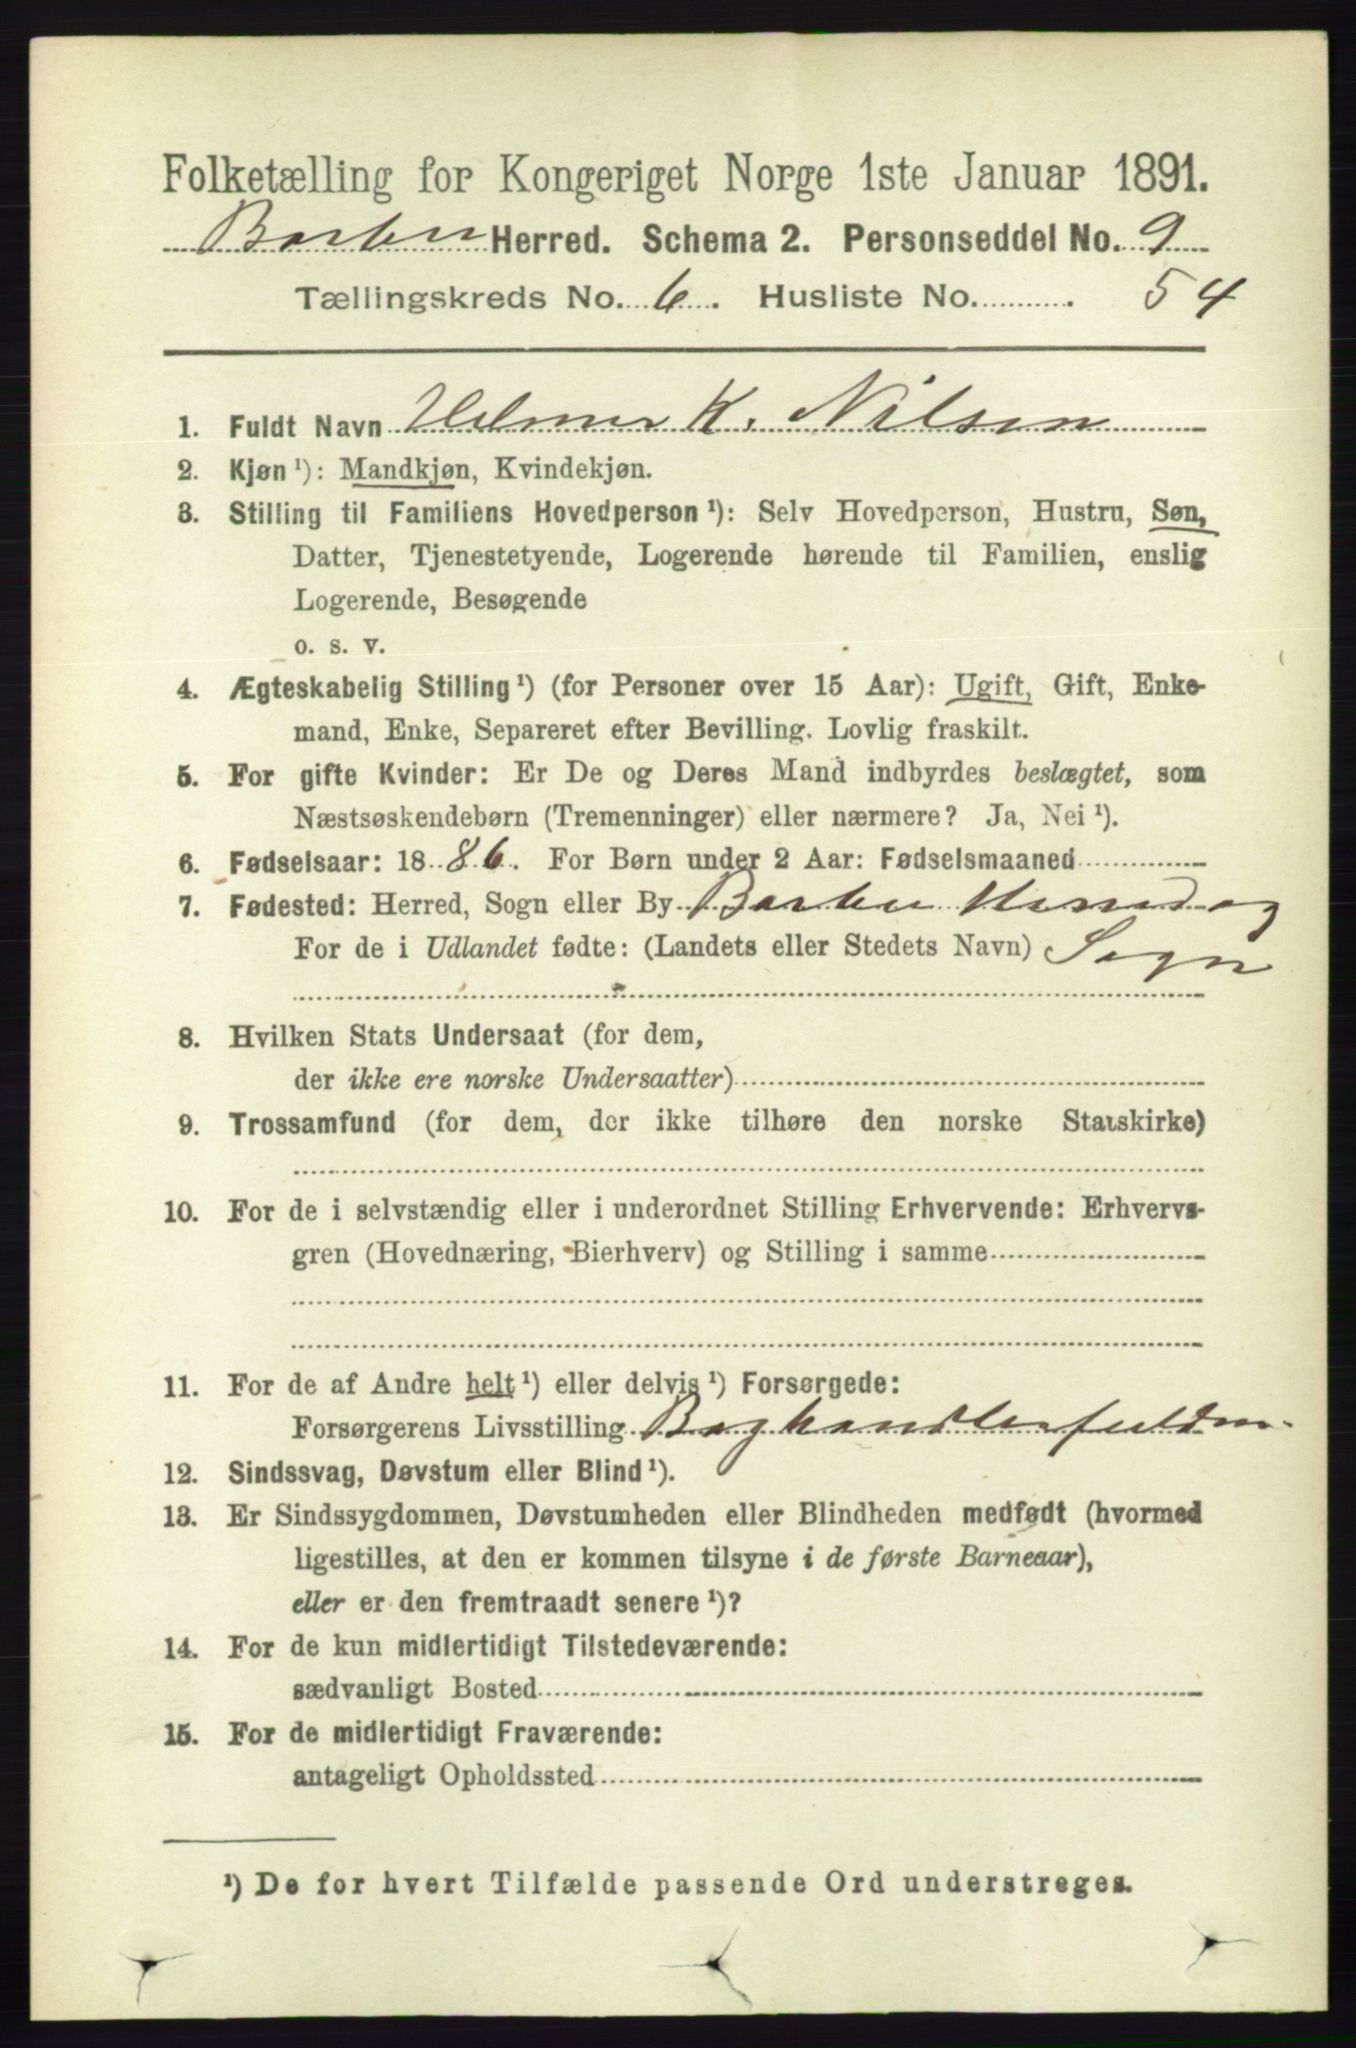 Folketælling for Kongeriget Norge 1ste Januar 1891.
Barbu Herred. Schema 2. Personseddel No. 9
Tællingskreds No. 6. Husliste No. 54
1. Fuldt Navn Helmer K. Nilsen
2. Kjøn ¹): Mandkjøn, Kvindekjøn.
3. Stilling til Familiens Hovedperson ¹): Selv Hovedperson, Hustru, Søn,
Datter, Tjenestetyende, Logerende hørende til Familien, enslig
Logerende, Besøgende
o. s. v.
4. Ægteskabelig Stilling ¹) (for Personer over 15 Aar): Ugift, Gift, Enke-
mand, Enke, Separeret efter Bevilling. Lovlig fraskilt.
5. For gifte Kvinder: Er De og Deres Mand indbyrdes beslægtet, som
Næstsøskendebørn (Tremenninger) eller nærmere? Ja, Nei ¹).
6. Fødselsaar: 1886. For Børn under 2 Aar: Fødselsmaaned
7. Fødested: Herred, Sogn eller By Barbu Herred og
For de i Udlandet fødte: (Landets eller Stedets Navn) Sogn
8. Hvilken Stats Undersaat (for dem,
der ikke ere norske Undersaatter)
9. Trossamfund (for dem, der ikke tilhøre den norske Statskirke)
10. For de i selvstændig eller i underordnet Stilling Erhvervende: Erhvervs-
gren (Hovednæring, Bierhverv) og Stilling i samme
11. For de af Andre helt ¹) eller delvis ¹) Forsørgede:
Forsørgerens Livsstilling Boghandlerfuldm.
12. Sindssvag, Døvstum eller Blind ¹).
13. Er Sindssygdommen, Døvstumheden eller Blindheden medfødt (hvormed
ligestilles, at den er kommen tilsyne i de første Barneaar),
eller er den fremtraadt senere ¹)?
14. For de kun midlertidigt Tilstedeværende:
sædvanligt Bosted
15. For de midlertidigt Fraværende:
antageligt Opholdssted
¹) De for hvert Tilfælde passende Ord understreges.